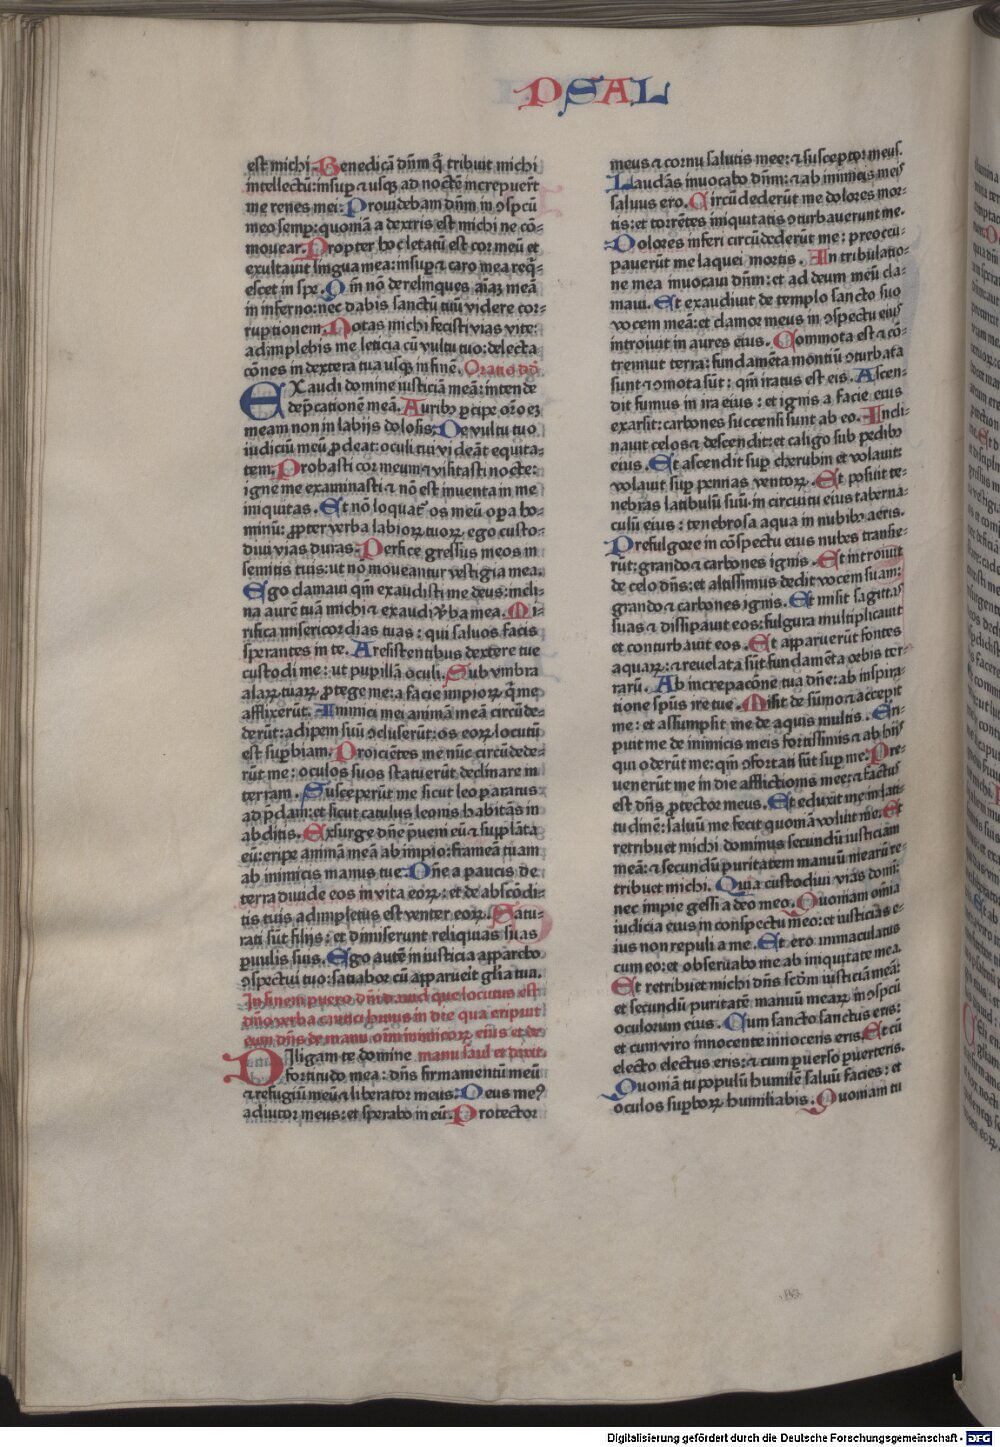 PSAL
est michi. Benedicā dn̄m q̄ tribuit michi
intellectū: insuꝑ ⁊ usqꝫ ad noctē increpuerūt
me renes mei. Providebam dn̄m in ↄspcū
meo semꝑ: quoniā a dextris est michi ne cō-
movear. Propter hoc letatū est cor meū et
exultavit lingua mea: insuꝑ ⁊ caro mea reqͥ-
escet in spe. Qm̄ nō derelinques aīaꝫ meā
in inferno: nec dabis sanctū tuū videre cor-
ruptionem. Notas michi fecisti vias vite:
adimplebis me leticia cū vultu tuo: delecta
cōnes in dextera tua usqꝫ in finē. Oratio dd̄
EXaudi domine iusticiā meā: intende
dep̄cationē meā. Auribꝰ ꝑcipe or̄oeꝫ
meam non in labijs dolosis. De vultu tuo
iudiciū meū ꝓdeat: oculi tui videāt equita-
tem. Probasti cor meum ⁊ visitasti nocte:
igne me examinasti ⁊ nō est inventa in me
iniquitas. Et nō loquat᷑ os meū oꝑa ho-
minū: ꝓpter verba labioꝝ tuoꝝ ego custo-
divi vias duras. Perfice gressus meos in
semitis tuis: ut no moveantur vestigia mea.
Ego clamavi qm̄ exaudisti me deus: incli-
na aurē tuā michi ⁊ exaudi v̓ba mea. Mi-
rifica misericordias tuas: qui salvos facis
sperantes in te. A resistentibus dextere tue
custodi me: ut pupillā oculi. Sub umbra
alaꝝ tuaꝝ ꝓtege me: a facie impioꝝ qͥ me
afflixerūt. Inimici mei animā meā circūde-
derūt: adipem suū ↄcluserūt: os eoꝝ locutū
est suꝑbiam. Proicientes me nūc circūdede-
rūt me: oculos suos statuerūt declinare in
terram. Susceperūt me sicut leo paratus
ad p̄dam: et sicut catulus leonis habitās in
abditis. Exsurge dn̄e p̄veni eū ⁊ supplāta
eū: eripe animā meā ab impio: frameā tuam
ab inimicis manus tue. Dn̄e a paucis de
terra divide eos in vita eoꝝ: et de abscōdi-
tis tuis adimpletus est venter eoꝝ. Satu-
rati sūt filijs: et dimiserunt reliquias suas
ꝑvulis suis. Ego autē in iusticia apparebo
ↄspectui tuo: satiabor cū apparueit gl̄ia tua.
In finem puero dn̄i david que locutus est
dn̄o verba cantici huius in die qua eripuit
eum dn̄s de manu oīm inimicoꝝ eius et de
DIligam te domine manu saul et dixit.
fortitudo mea: dn̄s firmamentū meū
⁊ refugiū meū ⁊ liberator meus. Deus meꝰ
adiutor meus: et sperabo in eū. Protector
meus ⁊ cornu salutis mee: ⁊ susceptor meus.
Laudās invocabo dn̄m: ⁊ ab inimicis meis
salvus ero. Circūdederūt me dolores mor-
tis: et torrētes iniquitatis ↄturbaverunt me.
Dolores inferi circūdederūt me: preoccu-
paverūt me laquei mortis. In tribulatio-
ne mea invocavi dn̄m: et ad deum meū cla-
mavi. Et exaudivit de templo sancto suo
vocem meā: et clamor meus in ↄspectu eiꝰ
introivit in aures eius. Commota est ⁊ cō-
tremuit terra: fundamēta montiū ↄturbata
sunt ⁊ ↄmota sūt: qm̄ iratus est eis. Ascen-
dit fumus in ira eius: et ignis a facie eius
exarsit: carbones succensi sunt ab eo. Incli-
navit celos ⁊ descendit: et caligo sub pedibꝰ
eius. Et ascendit suꝑ cherubin et volavit:
volavit suꝑ pennas ventoꝝ. Et posuit te-
nebras latibulū suū: in circuitu eius taberna-
culū eius: tenebrosa aqua in nubibꝰ aeris.
Prefulgore in cōspectu eius nubes transie-
rūt: grando ⁊ carbones ignis. Et intonuit
de celo dn̄s: et altissimus dedit vocem suam:
grando ⁊ carbones ignis. Et misit sagittas
suas ⁊ dissipavit eos: fulgura multiplicavit
et conturbavit eos. Et apparuerūt fontes
aquaꝝ: ⁊ revelata sūt fundamēta orbis ter-
rarū. Ab increpacōne tua dn̄e: ab inspira-
tione spūs ire tue. Misit de sūmo ⁊ accepit
me: et assumpsit me de aquis multis. Eri-
puit me de inimicis meis fortissimis ⁊ ab hijs
qui oderūt me: qm̄ ↄfortati sūt suꝑ me. Pre-
venerūt me in die afflictionis mee: ⁊ factus
est dn̄s ꝓtector meus. Et eduxit me in lati-
tudinē: salvū me fecit quoniā voluit me. Et
retribuet michi dominus secundū iusticiam
meā: ⁊ secundū puritatem manuū mearū re-
tribuet michi. Quia custodivi vias domī:
nec impie gessi a deo meo. Quoniam omnia
iudicia eius in conspectu meo: et iusticias e-
ius non repuli a me. Et ero immaculatus
cum eo: et observabo me ab iniquitate mea.
Et retribuet michi dn̄s scd̄m iusticiā meā:
et secundū puritatē manuū mearꝝ in ↄspcū
oculorum eius. Cum sancto sanctus eris:
et cum viro innocente innocens eris. Et cū
electo electus eris: ⁊ cum ꝑverso ꝑverteris.
Quoniā tu populū humilē salvū facies: et
oculos suꝑboꝝ humiliabis. Quoniam tu
Digitalisierung gefördert durch die Deutsche Forschungsgemeinschaft - DFG